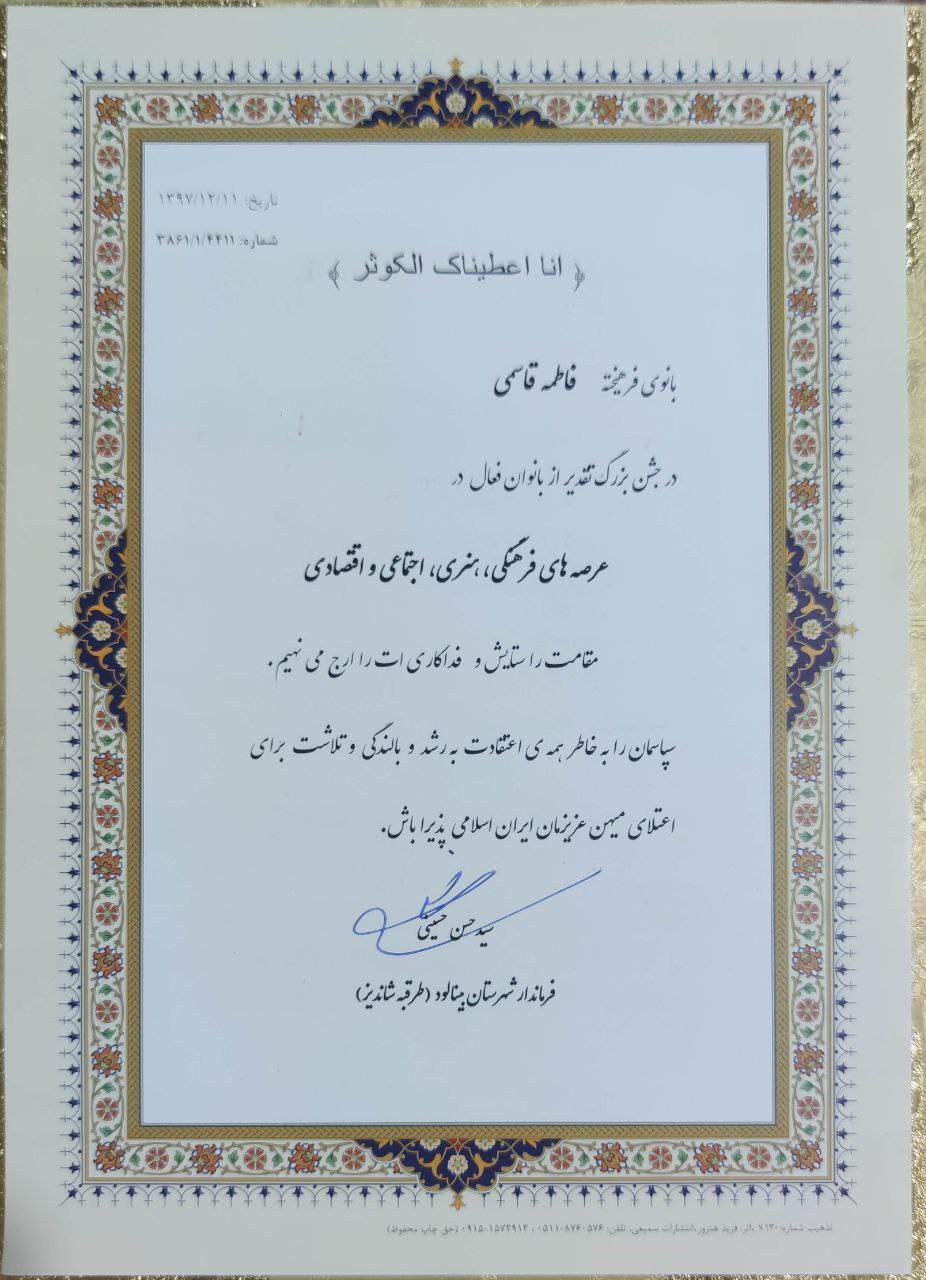 تاریخ: ۱۳۹۷/۱۲/۱۱
شماره: ۳۸۶۱/۱/۴۴۱۱
﴿ انا اعطیناک الکوثر ﴾
بانوی فرهیخته فاطمه قاسمی
در جشن بزرگ تقدیر از بانوان فعال در
عرصه های فرهنگی، هنری، اجتماعی و اقتصادی
مقامت را ستایش و فداکاری ات را ارج می نهیم.
سپاسمان را به خاطر همه ی اعتقادت به رشد و بالندگی و تلاشت برای
اعتلای میهن عزیزمان ایران اسلامی پذیرا باش.
سید حسن حسینی
فرماندار شهرستان بینالود (طرقبه شاندیز)
تذهیب شماره: ۱۳۰ اثر: فرید هنرور، انتشارات سمیعی، تلفن: ۸۷۶۰۵۷۶-۰۵۱۱ ، ۱۵۷۲۹۱۳-۰۹۱۵ (حق چاپ محفوظ)